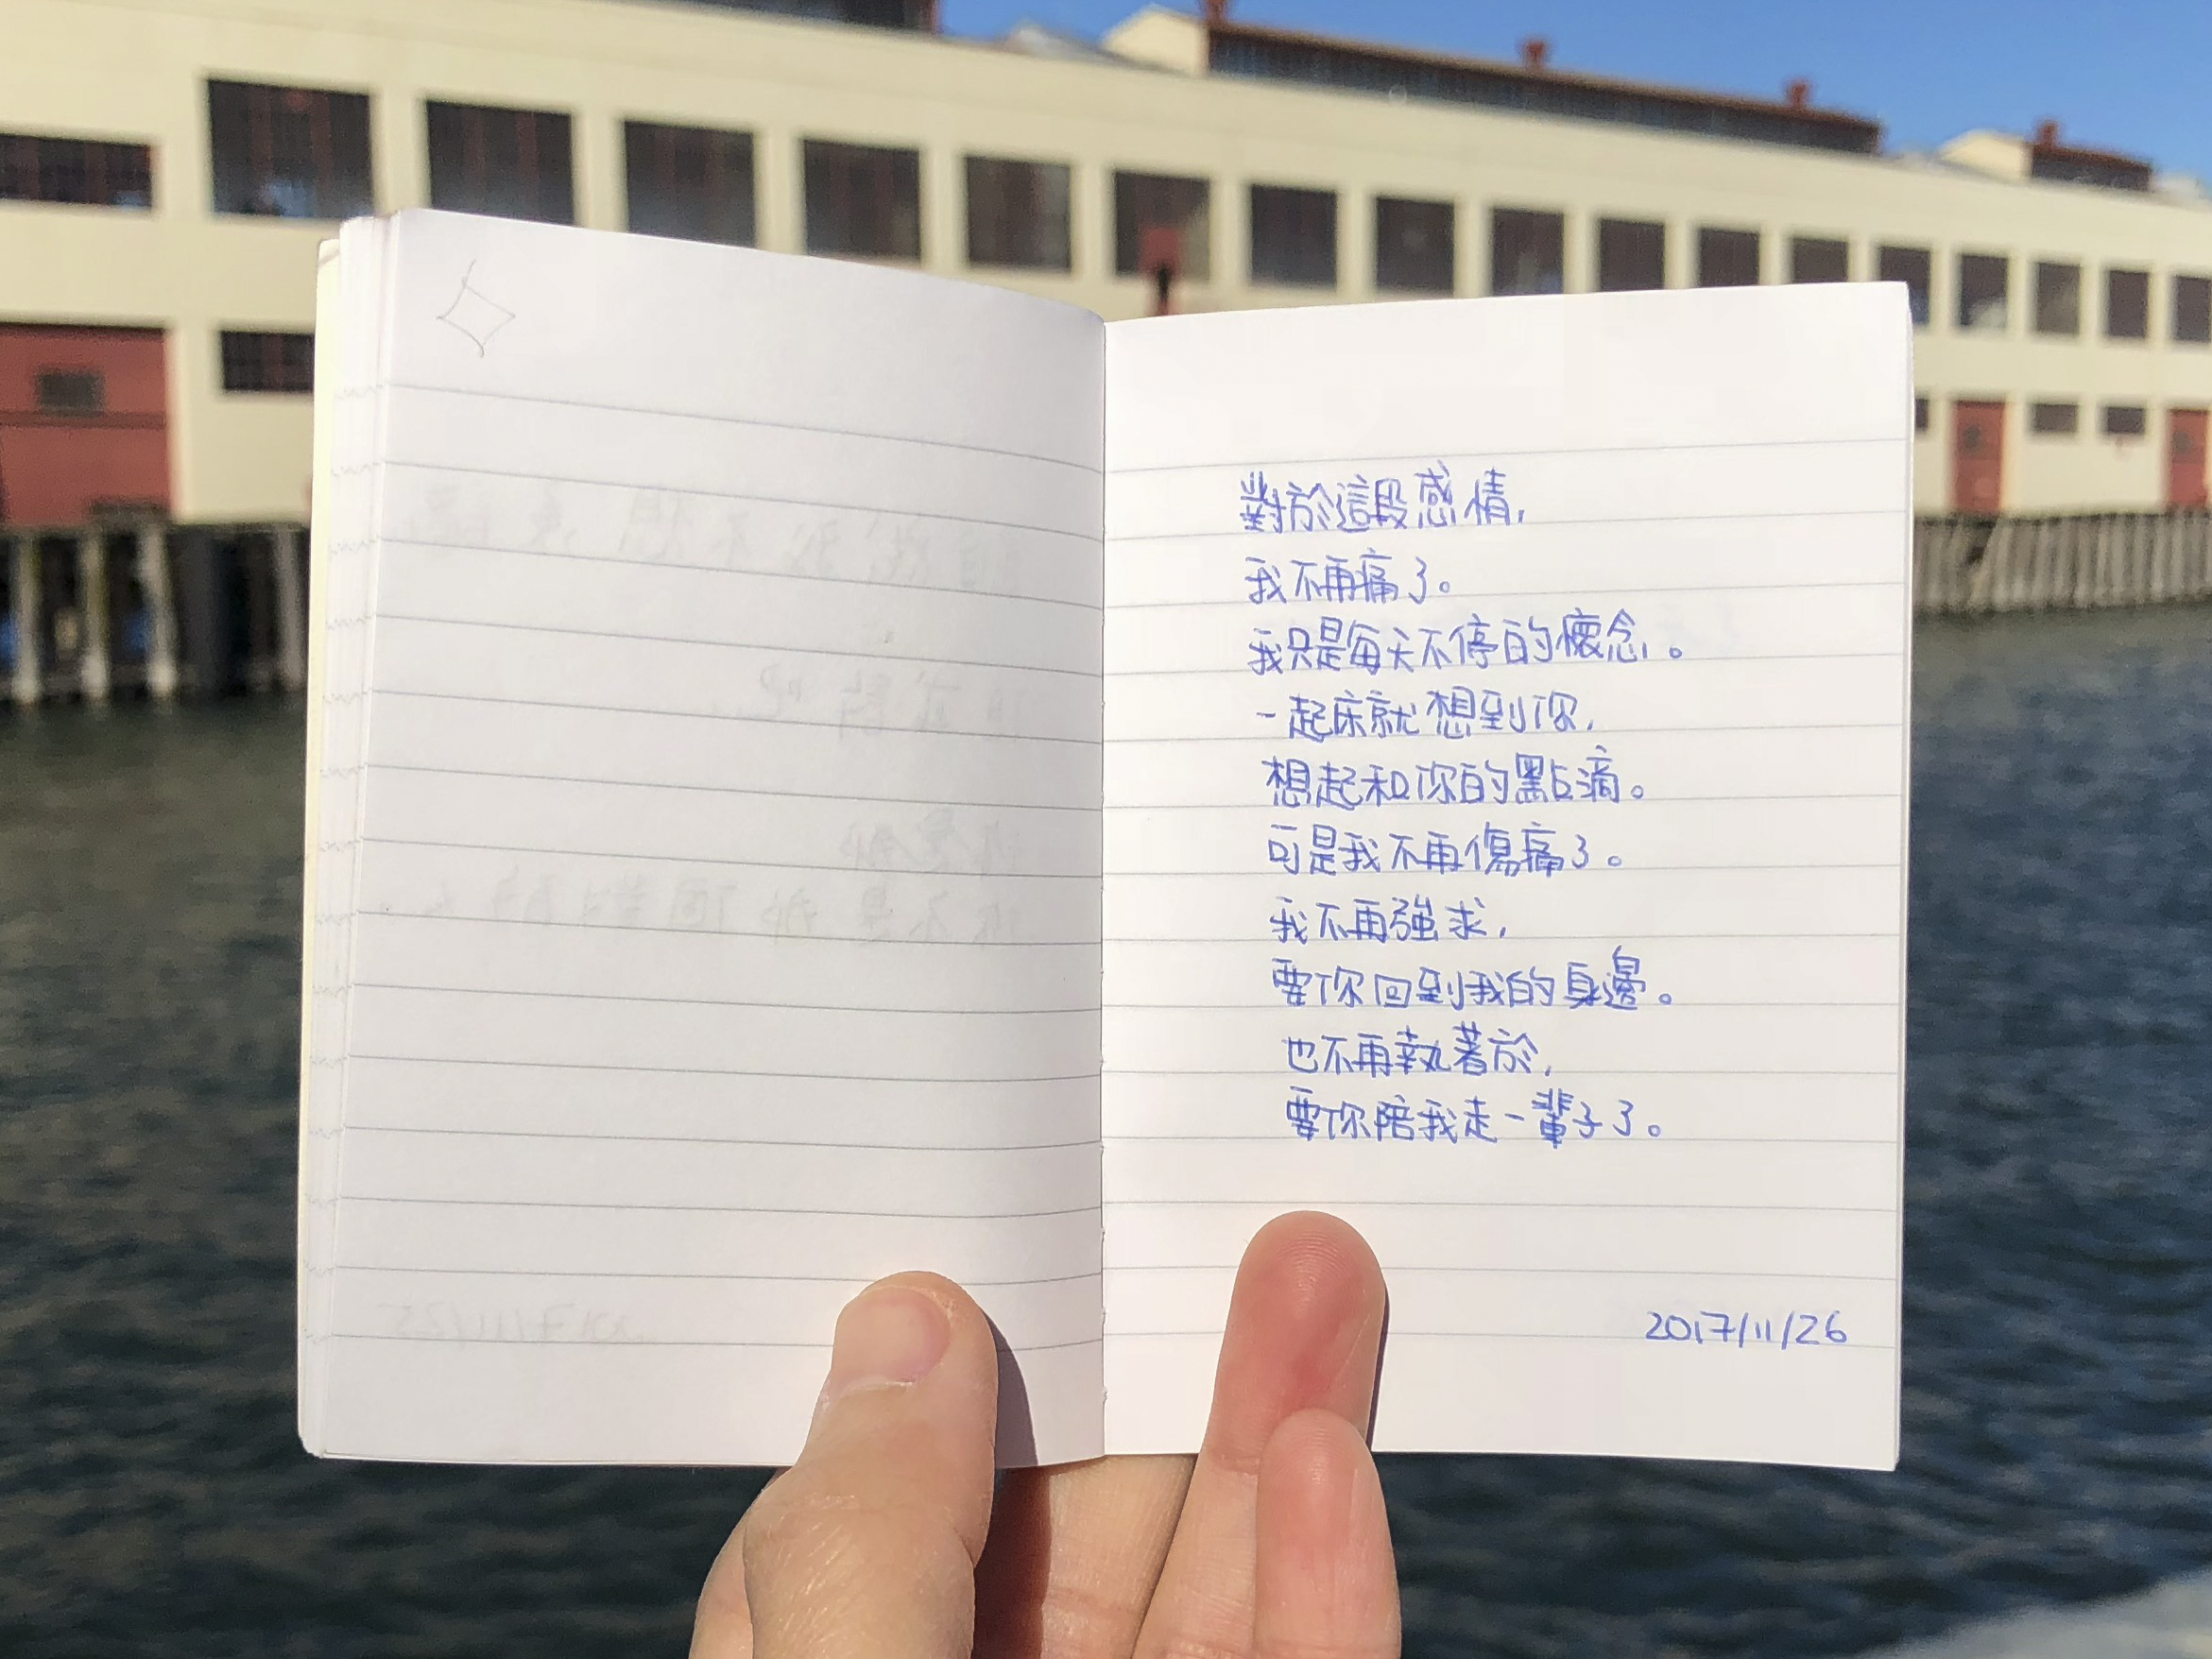 對於這段感情,
我不再痛了。
我只是每天不停的懷念。
一起床就想到你,
想起和你的點滴。
可是我不再傷痛了。
我不再強求,
要你回到我的身邊。
也不再執著於,
要你陪我走一輩子了。
2017/11/26